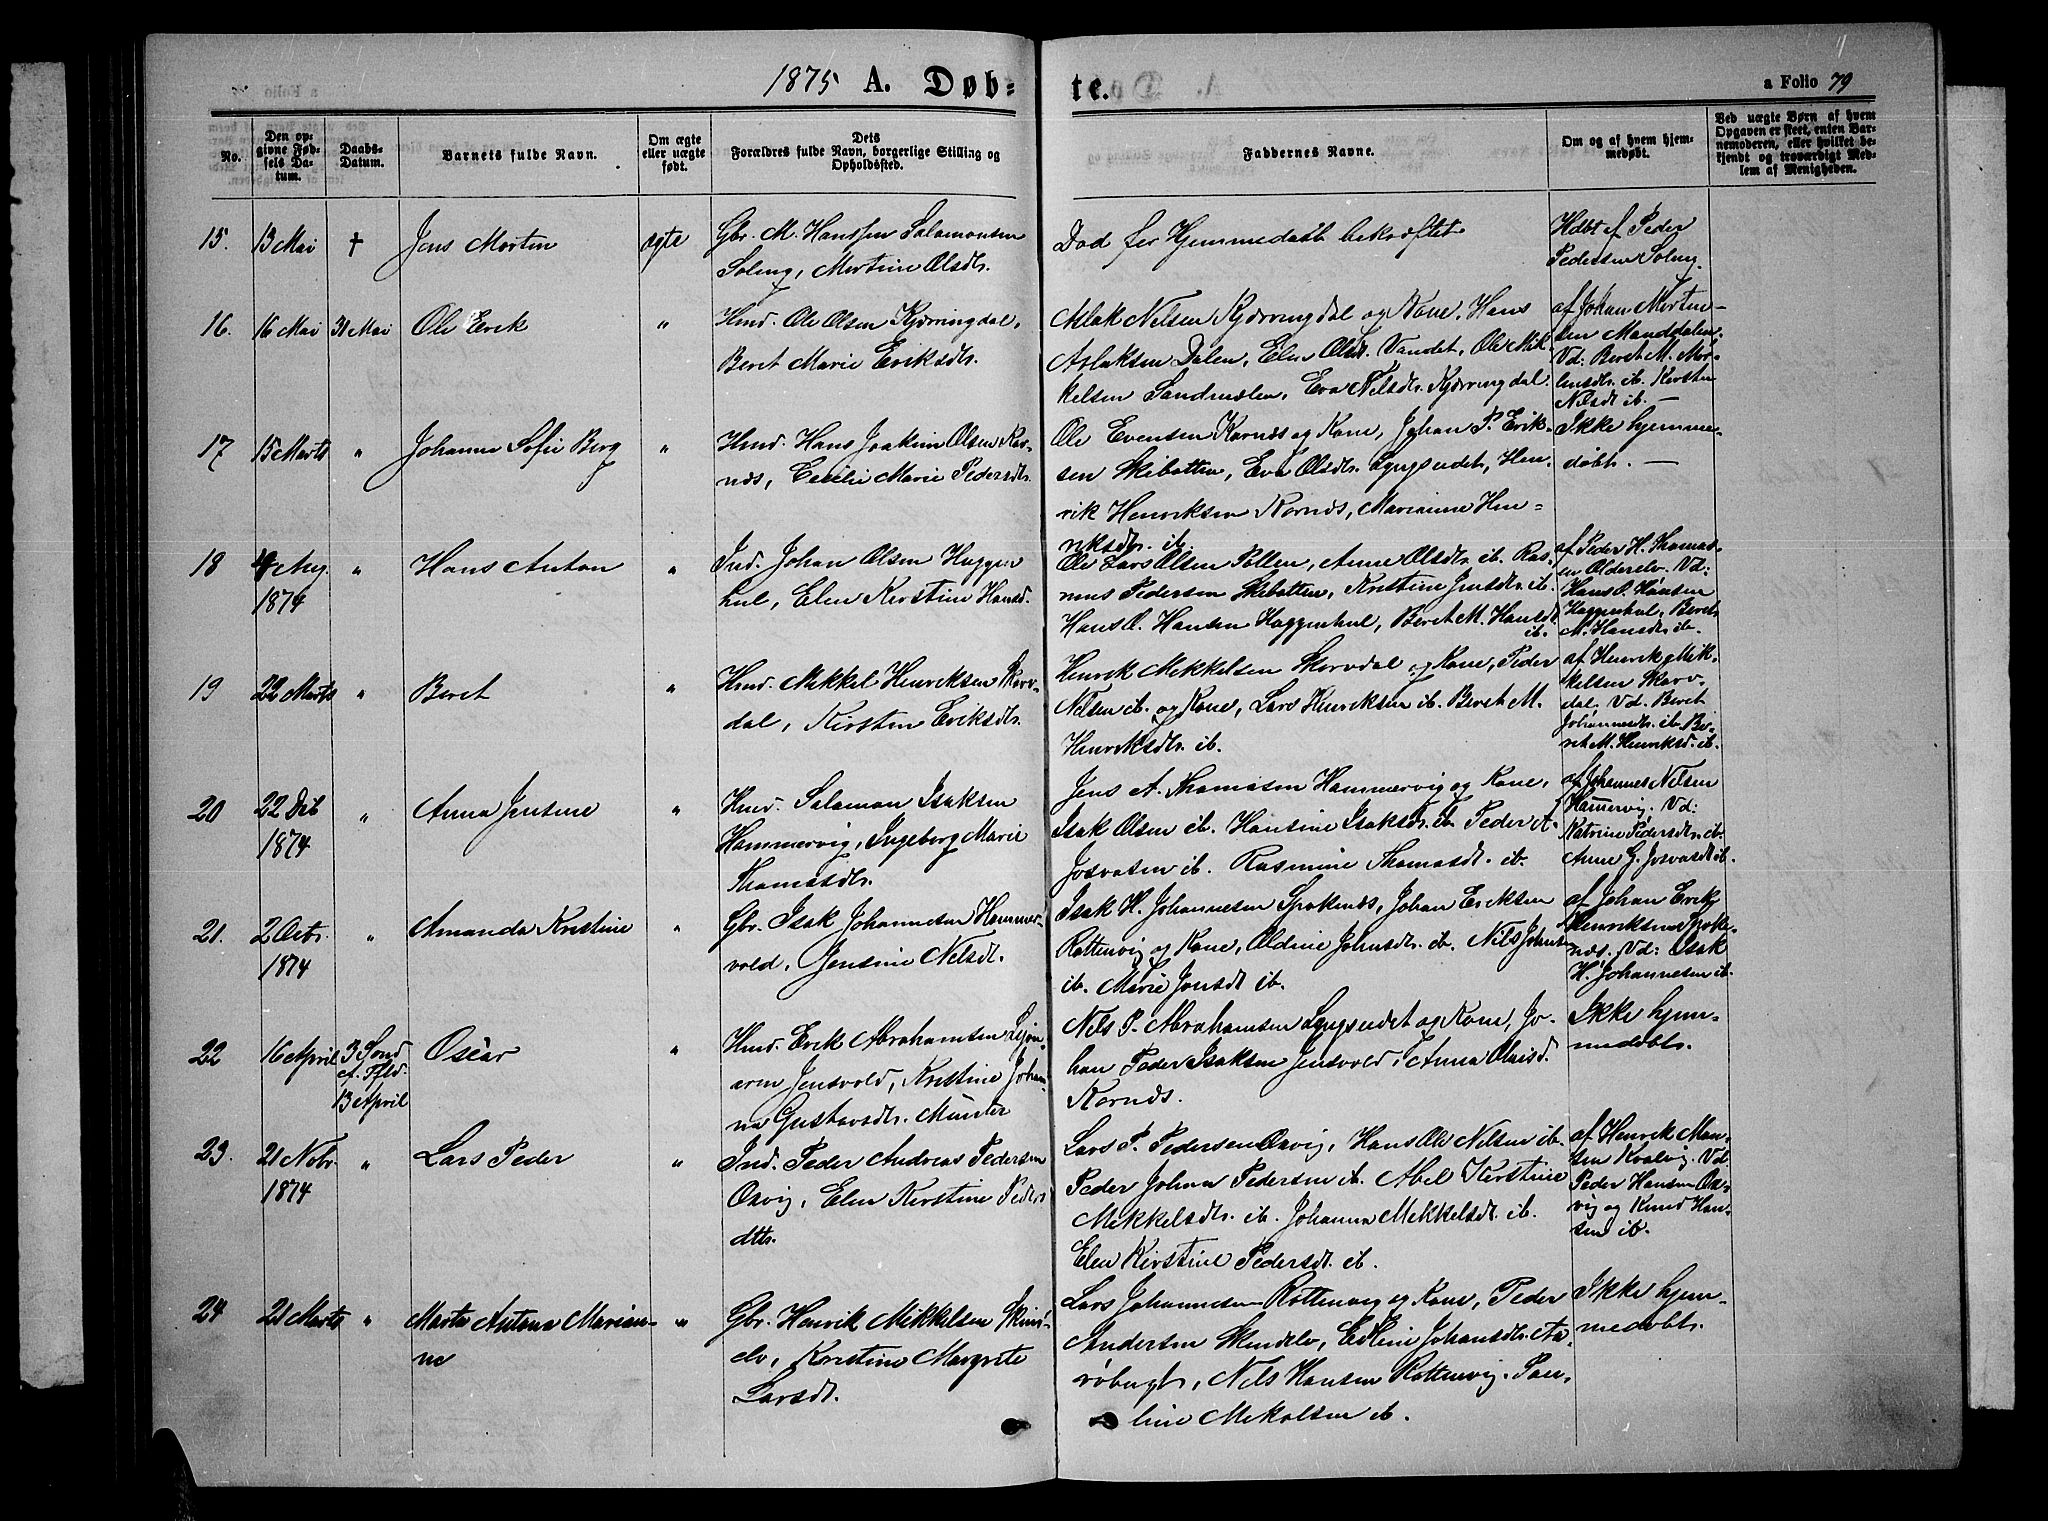 1875 A. Døb= te. a Folio 79
No.
Den op-
givne Fød-
sels Da-
tum.
Daabs-
Datum.
Barnets fulde Navn.
Om ægte
eller uægte
født.
Dets
Forældres fulde Navn, borgerlige Stilling og
Opholdsted.
Faddernes Navne.
Om og af hvem hjem-
medøbt.
Ved uægte Børn af hvem
Opgaven er skeet, enten Bar-
nemoderen, eller hvilket be-
kjendt og troværdigt Med-
lem af Menigheden.
15. 13 Mai † Jens Morten ægte
Gbr. M. Hanssen Salamonsen
Soleng, Mortine Olsdtr.
Død før Hjemmedaab bekræftet
Hdbt af Peder
Pedersen Soleng.
16. 16 Mai 31 Mai Ole Erik "
Hmd. Ole Olsen Kjærringdal,
Beret Marie Eriksdtr.
Aslak Nilsen Kjærringdal og Kone, Hans
Aslaksen Dalen, Elen Olsdtr. Vandet, Ole Mik
kelsen Sandmælen, Eva Nilsdtr. Kjærringdal.
af Johan Morten-
sen Manddalen.
Vd: Beret M. Mor-
tensdtr. ib. Kirsten
Nilsdt ib. —
17 15 Marts " Johanna Sofie Berg "
Hmd. Hans Joakim Olsen Kor-
næs, Cecilie Marie Pedersdtr.
Ole Evensen Kornæs og Kone, Johan P. Erik-
sen Skibotten, Eva Olsdtr. Lyngseidet, Hen-
rik Henriksen Kornæs, Marianne Hen-
riksdtr. ib.
Ikke hjemme-
døbt. —
18 4 Aug. " Hans Anton "
1874
Ind. Johan Olsen Haggen
hul, Elen Kirstine Hansd.
Ole Lars Olsen Pollen, Anne Olsdtr. ib. Ras-
mus Pedersen Skibotten, Kristine Jensdtr. ib.
Hans O. Hansen Haggenhul, Beret M. Hansdt
ib.
af Peder H. Thomas-
sen Olderelv. Vd:
Hans O. Hansen
Haggenhul, Beret
M. Hansdtr. ib.
19 22 Marts " Beret "
Hmd. Mikkel Henriksen Skorv-
dal, Kirsten Eriksdtr.
Henrik Mikkelsen Skorvdal og Kone, Peder
Nilsen ib. og Kone, Lars Henriksen ib. Beret M.
Henriksdtr. ib.
af Henrik Mik-
kelsen Skorv-
dal. Vd. Beret
Johannesdtr. ib. Be-
ret M. Henriksd. ib.
20 22 Deb " Anna Jensine "
1874
Hmd. Salamon Isaksen
Hammervig, Ingeborg Marie
Thomasdtr.
Jens A. Thomasen Hammervig og Kone,
Isak Olsen ib. Hansine Isaksdtr. ib. Peder A
Josvasen ib. Rasmine Thomasdt. ib.
af Johannes Nilsen
Hamervig. Vd:
Katrine Pedersdtr. ib.
Anne G. Josvasdt ib.
21. 2 Octr. " Amanda Kristine "
1874
Gbr. Isak Johannesen Hammer-
vold, Jensine Nilsdt.
Isak H. Johannesen Spakenæs, Johan Eriksen
Rottenvig og Kone, Oldine Johnsdtr. ib. Nils Johnsen
ib. Marie Jonsdt ib.
af Johan Erik
Henriksen Spoke-
næs. Vd: Isak
H. Johannesen ib.
22 16 April 3 Sønd Oscar "
A. Pfld.
13 April
Hmd. Erik Abrahamsen
Jensvold, Kristine Johan-
na Gustavsdtr. Münter
Nils P. Abrahamsen Lyngseidet og Kone, Jo-
han Peder Isaksen Jensvold, Anna Olaisd.
Kornæs.
Ikke hjem-
medøbt.
23. 21 Nobr. " Lars Peder "
1874
Ind. Peder Andreas Pedersen
Oxvig, Elen Kirstine Peders
dttr.
Lars P. Pedersen Oxvig, Hans Ole Nilsen ib.
Peder Johan Pedersen ib. Abel Kirstine
Mikkelsdtr. ib. Johanna Mikkelsdt. ib.
Elen Kirstine Pedersdt. ib.
af Henrik Han-
sen Kvalvig. Vd
Peder Hansen Ox-
vig og Knud Han-
sen ib.
24 21 Marts " Marta Antona Marian- "
ne
Gbr. Henrik Mikkelsen Skind-
elv, Kirstine Margrete
Larsdt.
Lars Johannesen Rottenvig og Kone, Peder
Andersen Skindelv, Edline Johansdtr. Aa-
røbugt, Nils Hansen Rottenvig. Pau-
line Mikalsen ib.
Ikke hjem-
medøbt.